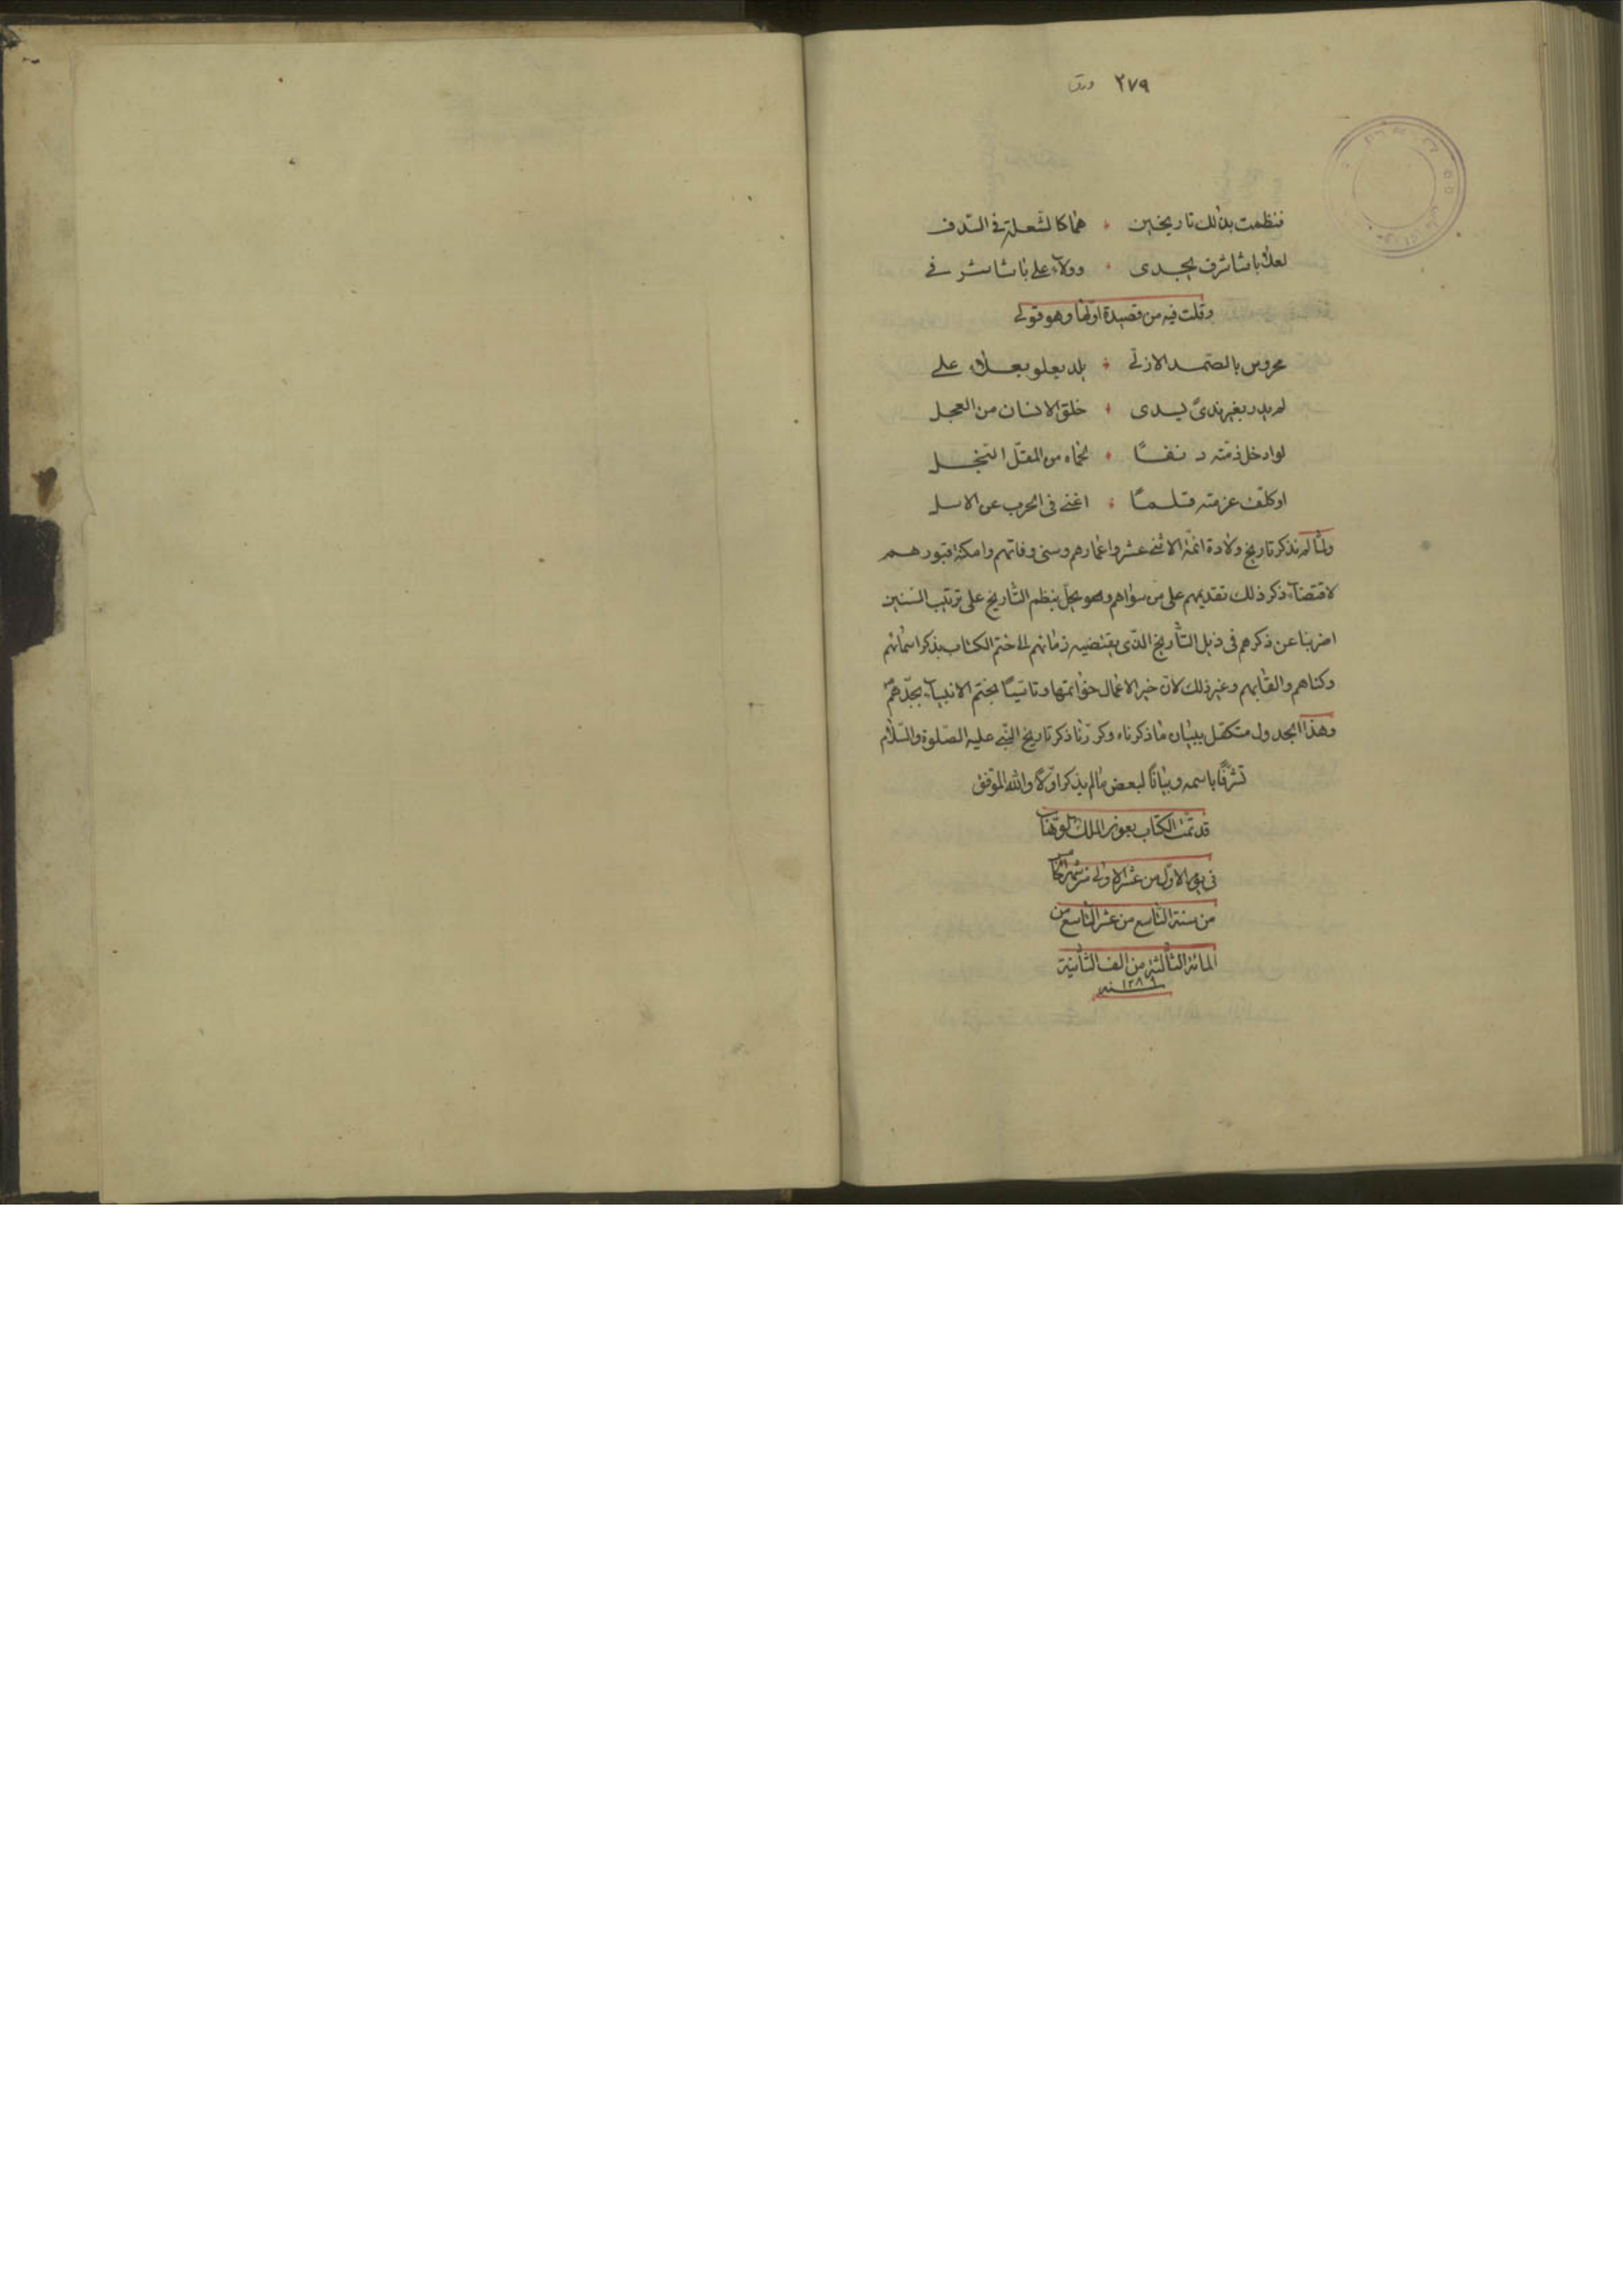 ٢٧٩ ورق
فنظمت بذلك تاريخين هما كالشعلة في السدف
لعلي باشا شرف يجدى وولاء علي باشا شرفي
وقلت فيه من قصيدة اولها وهو قولي
محروس بالصمد الازلي بلد يعلو بعلاء علي
لم يدر بغير ندى ليدى خلق الانسان من العجل
لو ادخل ذمته دنفًا لحماه من المقل النجل
او كلّف عزمته قلمًا اغنى في الحرب عن الاسل
ولما لم نذكر تاريخ ولادة ائمة الاثنى عشر واعمارهم وسنى وفاتهم وامكنة قبورهم
لاقتضاء ذكر ذلك تقديمهم على من سواهم وهو يخل بنظم التاريخ على ترتيب السنين
اضربنا عن ذكرهم في ذيل التأريخ الذي يقتضيه زمانهم الى ختم الكتاب بذكر اسمائهم
وكناهم والقابهم وغير ذلك لان خير الاعمال خواتمتها وتاسيًا بختم الانبياء بجدّهم ص
وهذا الجدول متكفل ببيان ما ذكرناه وكررنا ذكر تاريخ النبي عليه الصلوة والسلام
تشرّفًا باسمه وبيانًا لبعض ما لم يذكر اولًا والله الموفق
قد تمّت الكتاب بعون الملك الوهاب
في يوم الاول من عشر الاولى من شهر
من سنة التاسع من عشر التاسع من
المائة الثالثة من الف الثانية
سنه